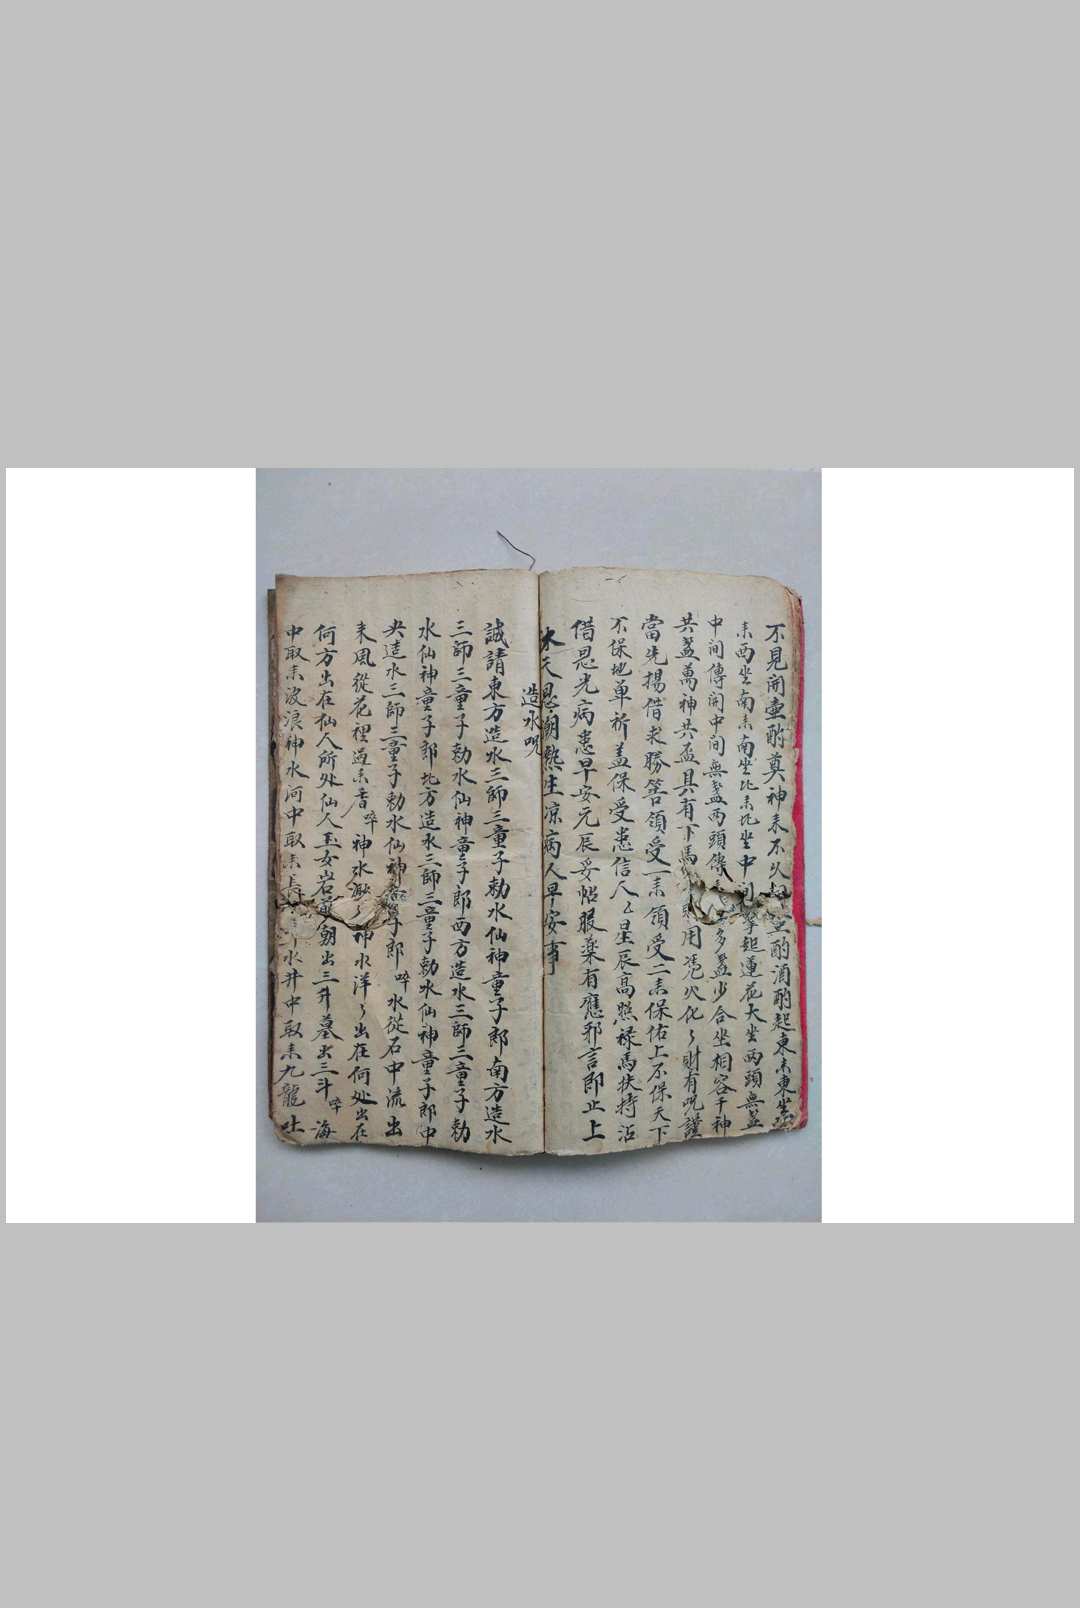 不見開壺酌奠神耒不火胡壺酌酒酌起東耒東坐
耒西坐南耒南坐北耒北坐中間擎起蓮花大坐两頭無盞
中间傳闹中间無盞两頭傳多盞少合坐相容千神
共盞萬神共盃具有下馬用凭火化〻财有咒謹
當先揚借求勝筶領受一耒領受二耒保佑上不保天下
不保地单祈盖保受患信人亾星辰高照禄馬扶持沾
借恩光病患早安元辰妥帖服薬有應邪言即止上
木天恩朝熱生凉病人早安事
造水咒
誠請東方造水三師三童子勅水仙神童子郎南方造水
三師三童子勅水仙神童子郎西方造水三師三童子勅
水仙神童子郎北方造水三師三童子勅水仙神童子郎中
央造水三師三童子勅水仙神童子郎啐水從石中流出
耒風從花裡過耒香啐神水漖〻神水洋〻出在何处出在
何方出在仙人所处仙人玉女岩前朝出三升墓出三斗啐海
中取耒波浪神水河中取耒長水井中取耒九龍吐